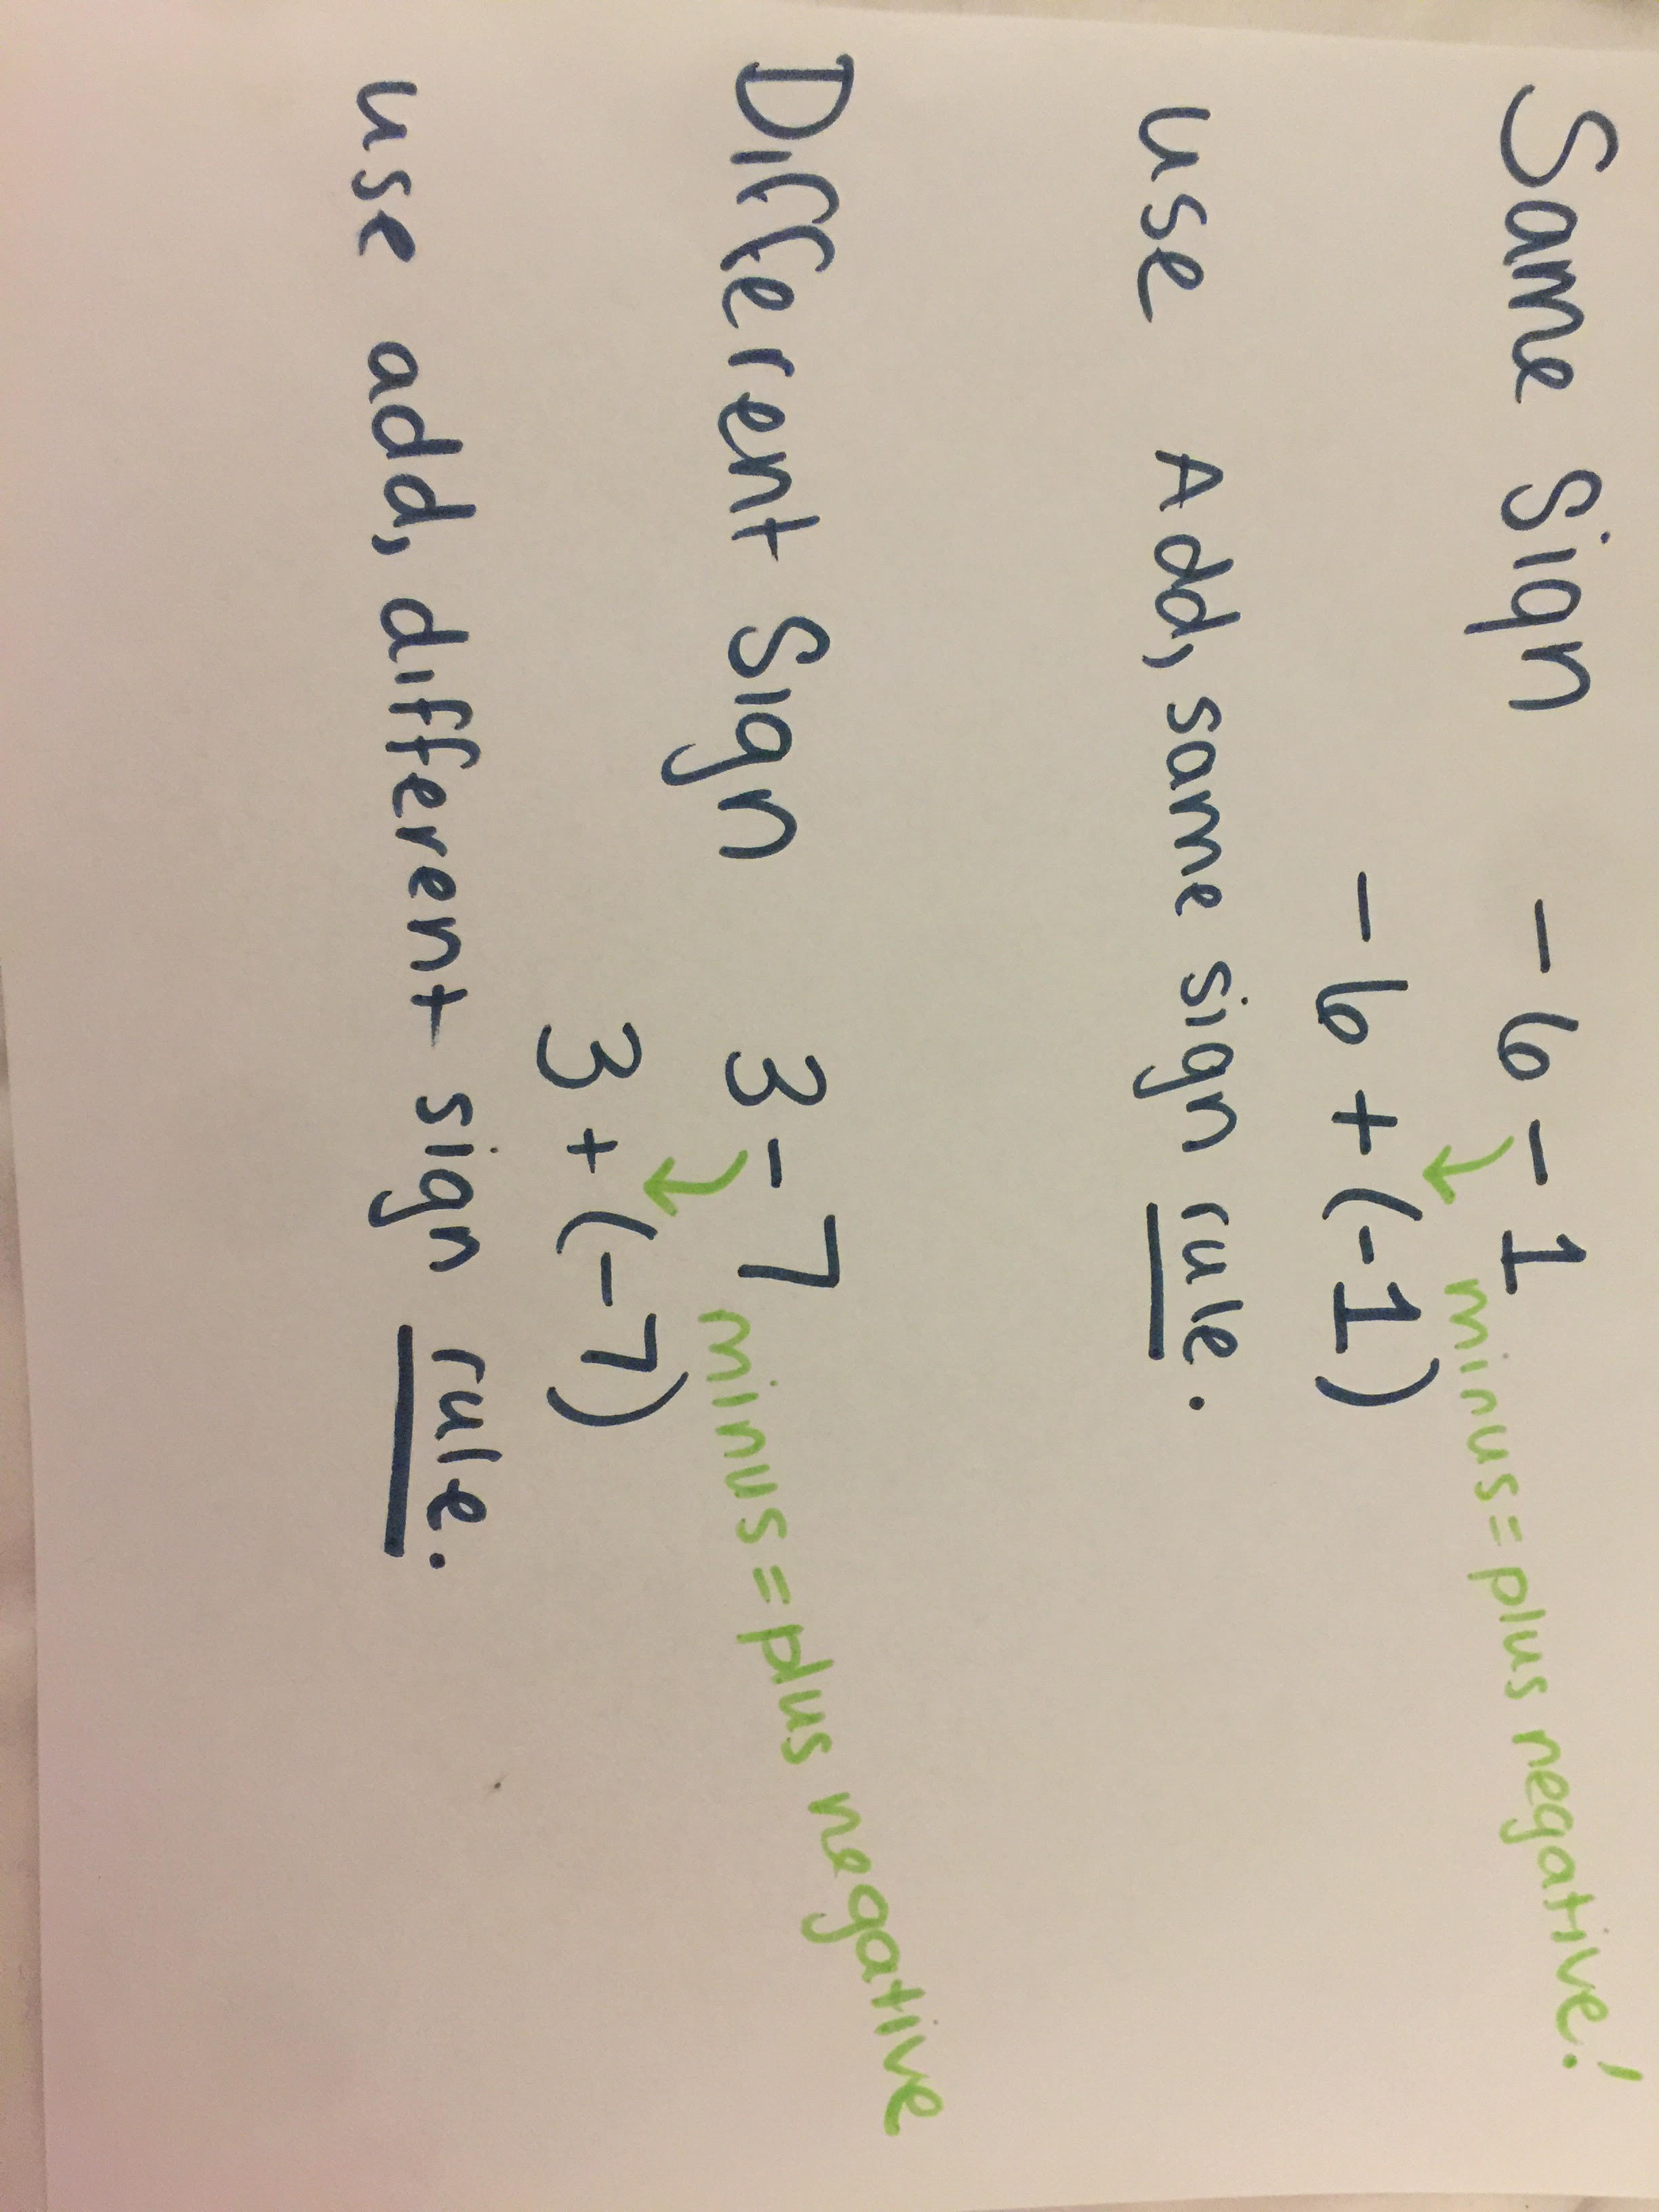 Same Sign -6 - 1 minus = plus negative!
-6 + (-1)
use Add, same sign rule.
Different Sign 3 - 7 minus = plus negative
3 + (-7)
use add, different sign rule.